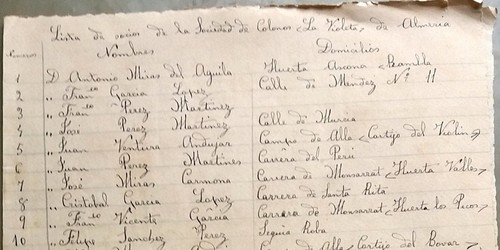 Lista de socios de la Sociedad de Colonos "La Violeta" de Almeria
Numeros Nombres Domicilios
1 D. Antonio Miras del Aguila Huerta Azcona Rambla
2 " Franco Garcia Lopez Calle de Mendez Nº 11
3 " Franco Perez Martinez
4 " José Perez Martinez Calle de Murcia
5 " Juan Ventura Andujar Campo de Alla Cortijo del Violin
6 " Juan Perez Martines Carrera del Perú
7 " José Miras Carmona Carrera de Monsarrat Huerta Valles
8 " Cristobal Garcia Lopez Carrera de Santa Rita
9 " Franco Vicente Garcia Carrera de Monsarrat Huerta los Picos
10 " Felipe Sanchez Perez Sequia
de Alla Cortijo del Bovar